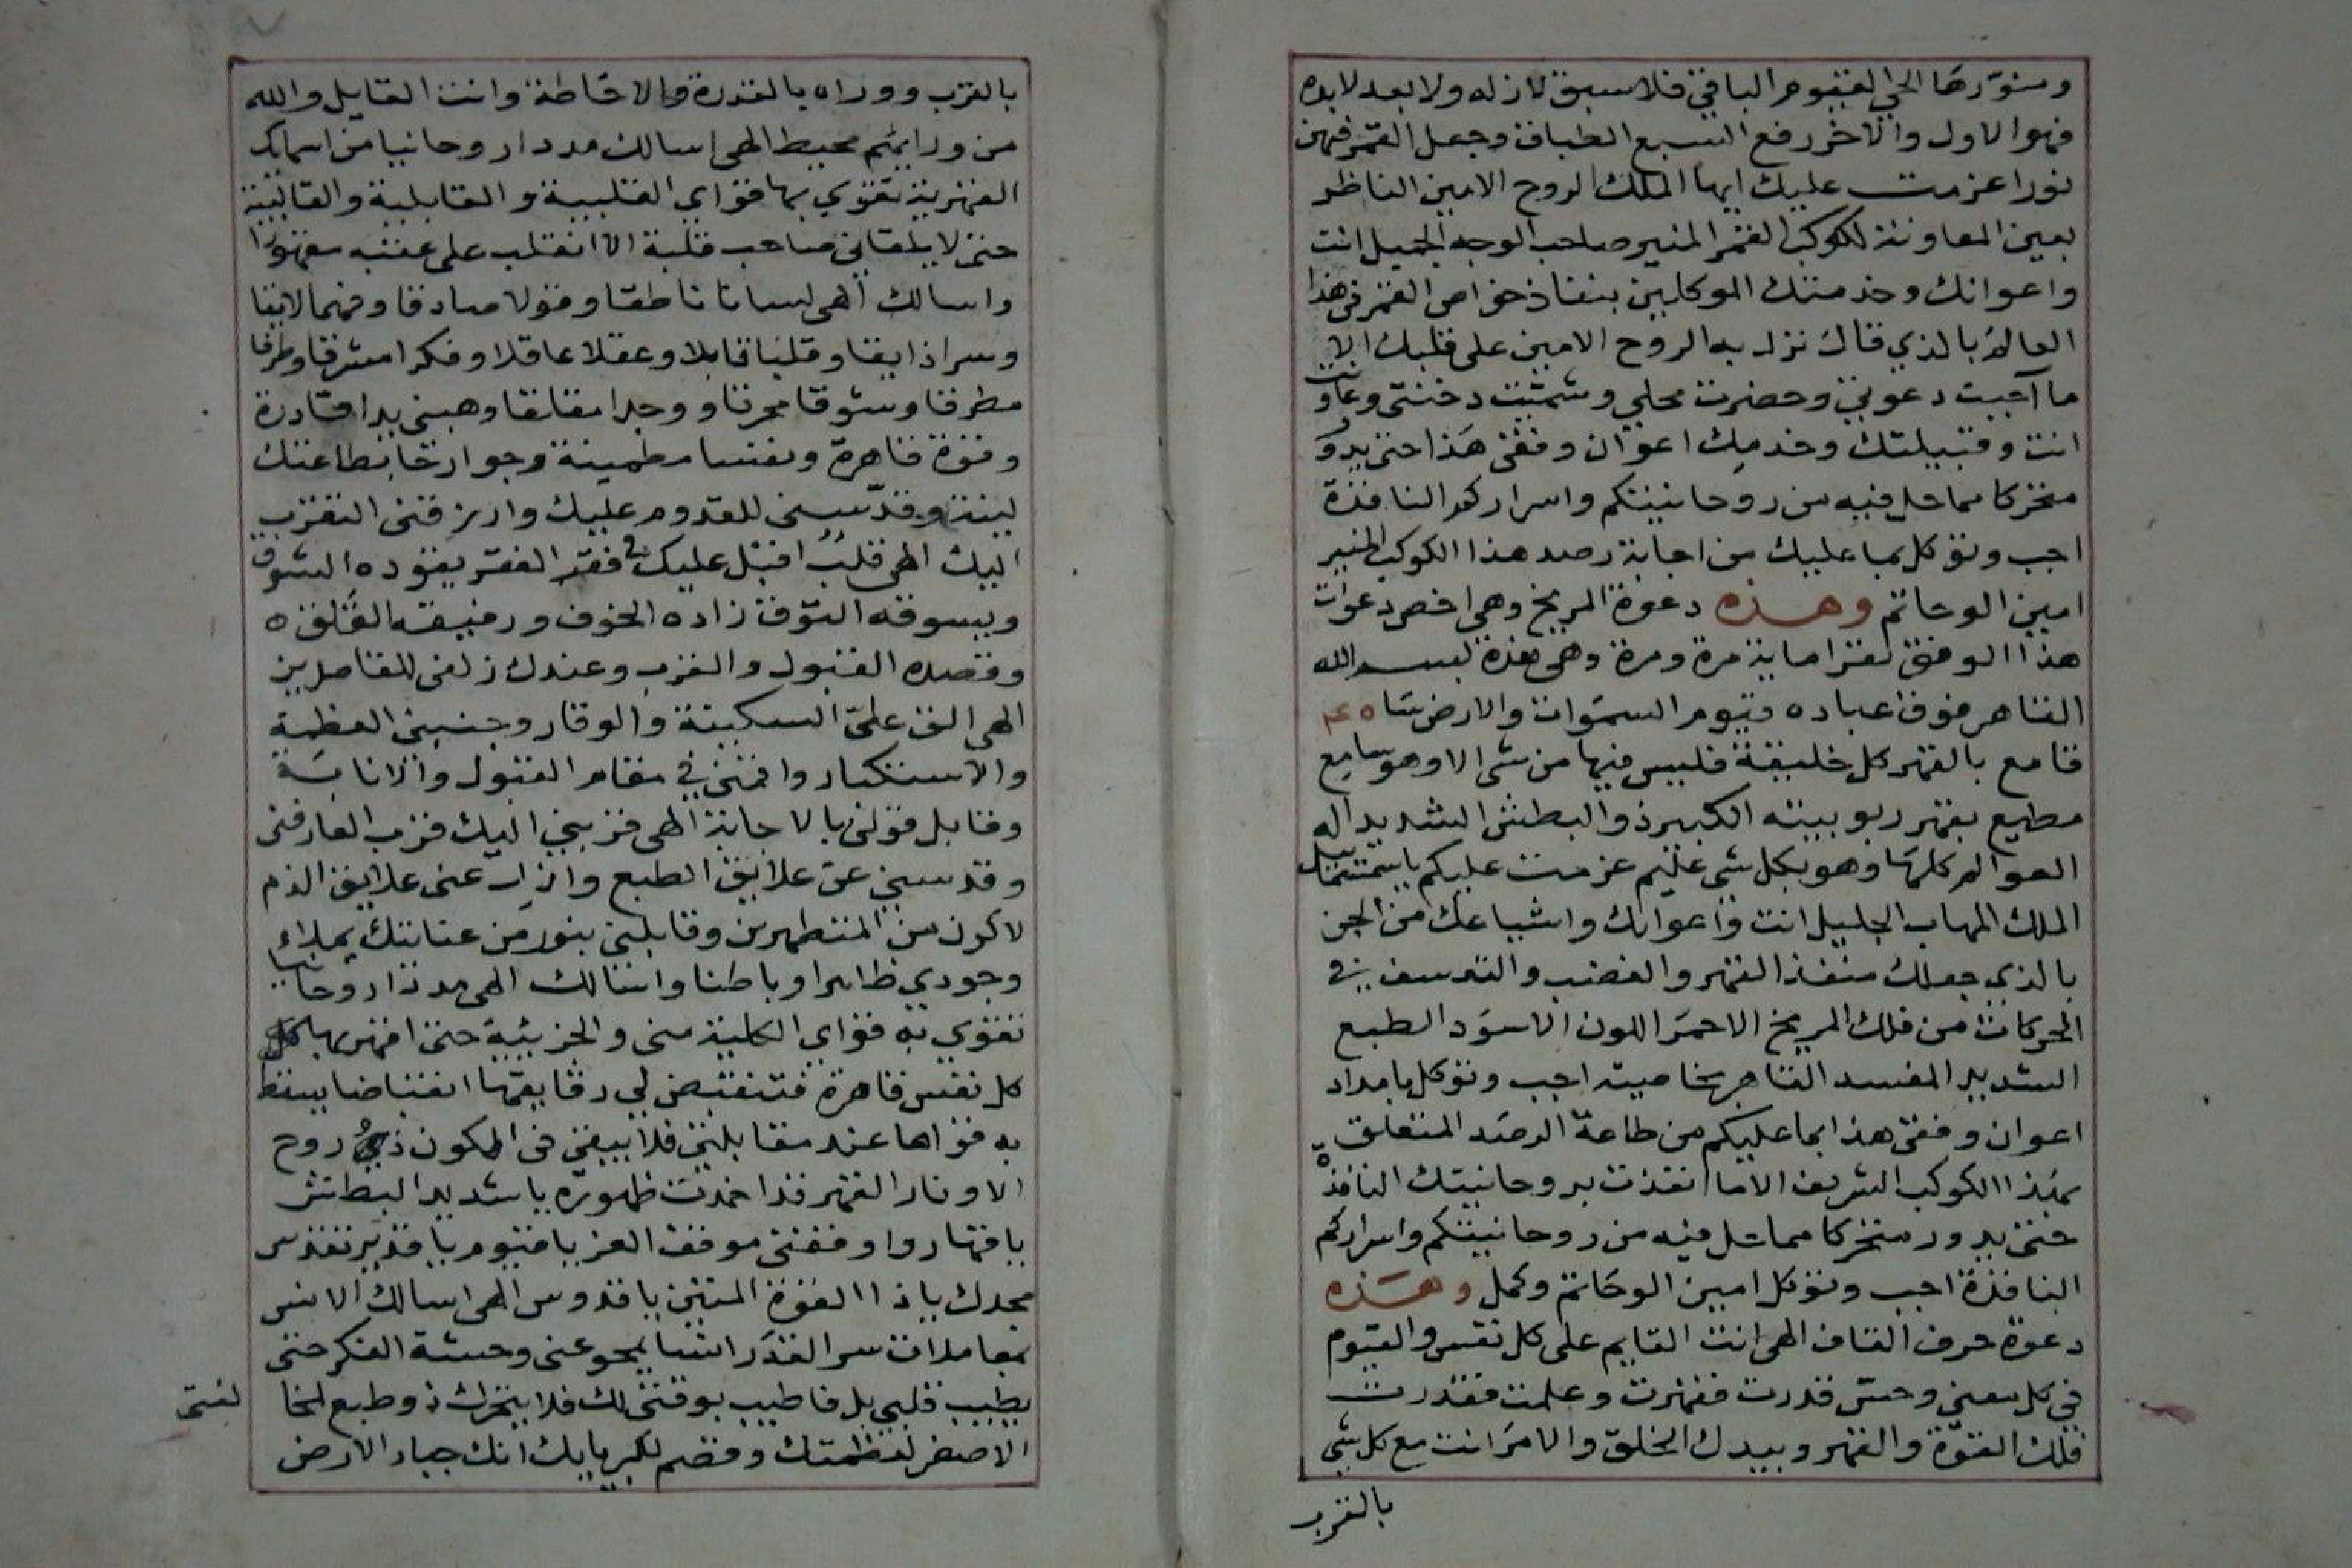 ومنورها الحي القيوم الباقي فلا سبق لازله ولا بعد لابده
فهو الاول والاخر رفع السبع الطباق وجعل القمر فيهن
نورا عزمت عليك ايها الملك الروح الامين الناظر
بعين المعاونة لكوكب القمر المنير صاحب الوجه الجميل انت
واعوانك وخدمتك الموكلين بنفاذ خواص القمر في هذا
العالم بالذي قال نزل به الروح الامين على قلبك الا
ما اجبت دعوتي وحضرت محلي وشميت دخنتي وعاونت
انت وقبيلتك وخدمك اعوان وفقي هذا حتى يدور
متحركا مما حل فيه من روحانيتكم واسراركم النافذة
اجب وتوكل بما عليك من اجابة رصد هذا الكوكب المنير
امين الوحاتم وهذه دعوة المريخ وهي اخص دعوات
هذا الوفق تقرا ماية مرة ومرة وهي هذه بسم الله
القاهر فوق عباده قيوم السموات والارض
قامع بالقهر كل خليقة فليس فيها من شي الا وهو سامع
مطيع بقهر ربوبيته الكبير ذو البطش الشديد اله
العوالم كلها وهو بكل شي عليم عزمت عليكم يا سمسمائيل
الملك المهاب الجليل انت واعوانك واشياعك من الجن
بالذي جعلك منفذ القهر والغضب والتدسف في
الحركات من فلك المريخ الاحمر اللون الاسود الطبع
الشديد المفسد القاهر بخاصيته اجب وتوكل يا مداد
اعوان وفقي هذا بما عليكم من طاعة الرصد المتعلق
بهذا الكوكب الشريف الا ما انفذت بروحانيتك النافذة
حتى يدور متحركا مما حل فيه من روحانيتكم واسراركم
النافذة اجب وتوكل امين الوحاتم وكمل وهذه
دعوة حرف القاف الهي انت القايم على كل نفس والقيوم
في كل معنى وحس قدرت فقهرت وعلمت فقدرت
فلك القوة والقهر وبيدك الخلق والامر انت مع كل شي
بالقرب
بالقرب ووراه بالقدرة والاحاطة وانت القايل والله
من ورايهم محيط الهي اسالك مددا روحانيا من اسمائك
القهرية تقوي بها قواي القلبية والقابلية والقالبية
حتى لا يلقاني صاحب قلبة الا انقلب على عقبه مقهورا
واسالك الهي لسانا ناطقا وقولا صادقا وفهما لايقا
وسرا ذايقا وقلبا قابلا وعقلا عاقلا وفكرا مشرقا وطرفا
مطرقا وشوقا محرقا ووجدا مقلقا وهبني يدا قادرة
وقوة قاهرة ونفسا مطمينة وجوارحا بطاعتك
لينة وقدسني للقدوم عليك وارزقني التقرب
اليك الهي قلب اقبل عليك فقد الفقر يقوده الشوق
ويسوقه التوق زاده الخوف ورفيقه القلق
وقصده القبول والقرب وعندك زلفى للقاصدين
الهي الق علي السكينة والوقار وجنبني العظمة
والاستكبار واقمني في مقام القبول والانابة
وقابل قولي بالاجابة الهي قربني اليك قرب العارفين
وقدسني عن علايق الطبع وازل عني علايق الذم
لاكون من المتطهرين وقابلني بنور من عنايتك يملاء
وجودي ظاهرا وباطنا واسالك الهي مددا روحانيا
تقوي به قواي الكلية مني والجزئية حتى اقهر بها كل
كل نفس قاهرة فتنقبض لي دقايقها انقباضا يسقط
به قواها عند مقابلتي فلا يبقى في الكون ذي روح
الا ونار القهر قد اخمدت ظهوره يا شديد البطش
يا قهار واوقفني موقف العز يا قيوم يا قدير تقدس
مجدك يا ذا القوة المتين يا قدوس الهي اسالك الانس
بمعاملات سر القدر انسا يمحو عني وحشة الفكر حتى
يطيب قلبي بل فاطيب بوقتي لك فلا يتحرك ذو طبع لمخا
لفتي
الا صغر لعظمتك وقصم لكبريايك انك جبار الارض